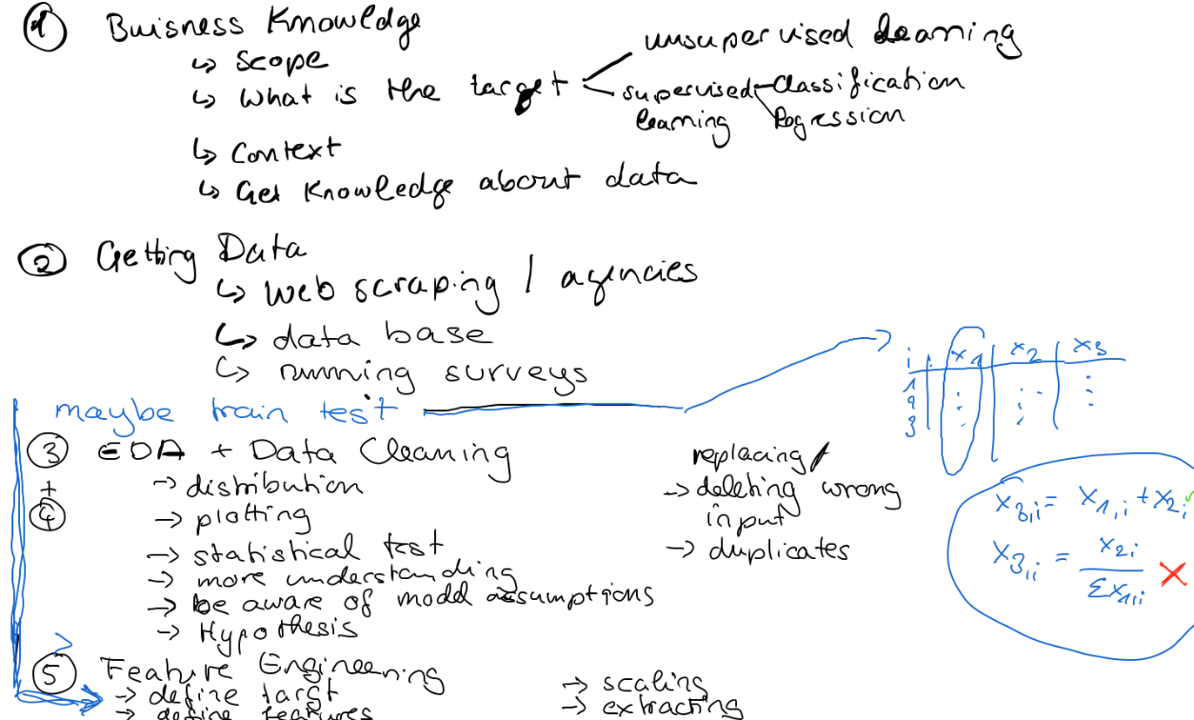 ① Buisness Knowledge
↳ Scope
↳ What is the target
unsupervised learning
supervised learning
Classification
Regression
↳ Context
↳ Get Knowledge about data
② Getting Data
↳ Web scraping / agencies
↳ data base
↳ running surveys
maybe train test
i x1 x2 x3
1 : : :
2 : : :
3
③ EDA + Data Cleaning
+
④
→ distribution
→ plotting
→ statistical test
→ more understanding
→ be aware of model assumptions
→ Hypothesis
replacing /
→ deleting wrong
input
→ duplicates
x3,i = x1,i + x2i ✓
x3,i = x2i / Σx1,i ✗
⑤ Feature Engineering
→ define targt
→ define features
→ scaling
→ extracting